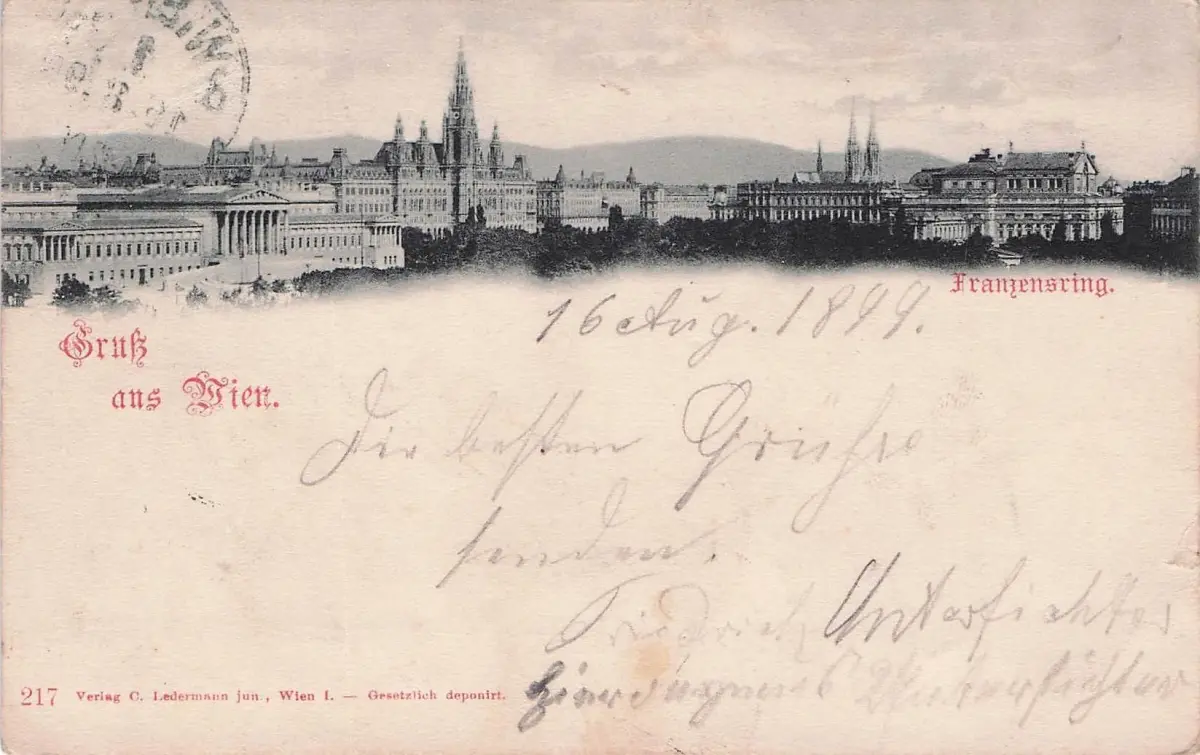 Franzensring.
16 Aug. 1899.
Gruß
aus Wien.
Die besten Grüße
senden.
Friedrich Unterfichter
217 Verlag C. Ledermann jun., Wien I. — Gesetzlich deponirt.